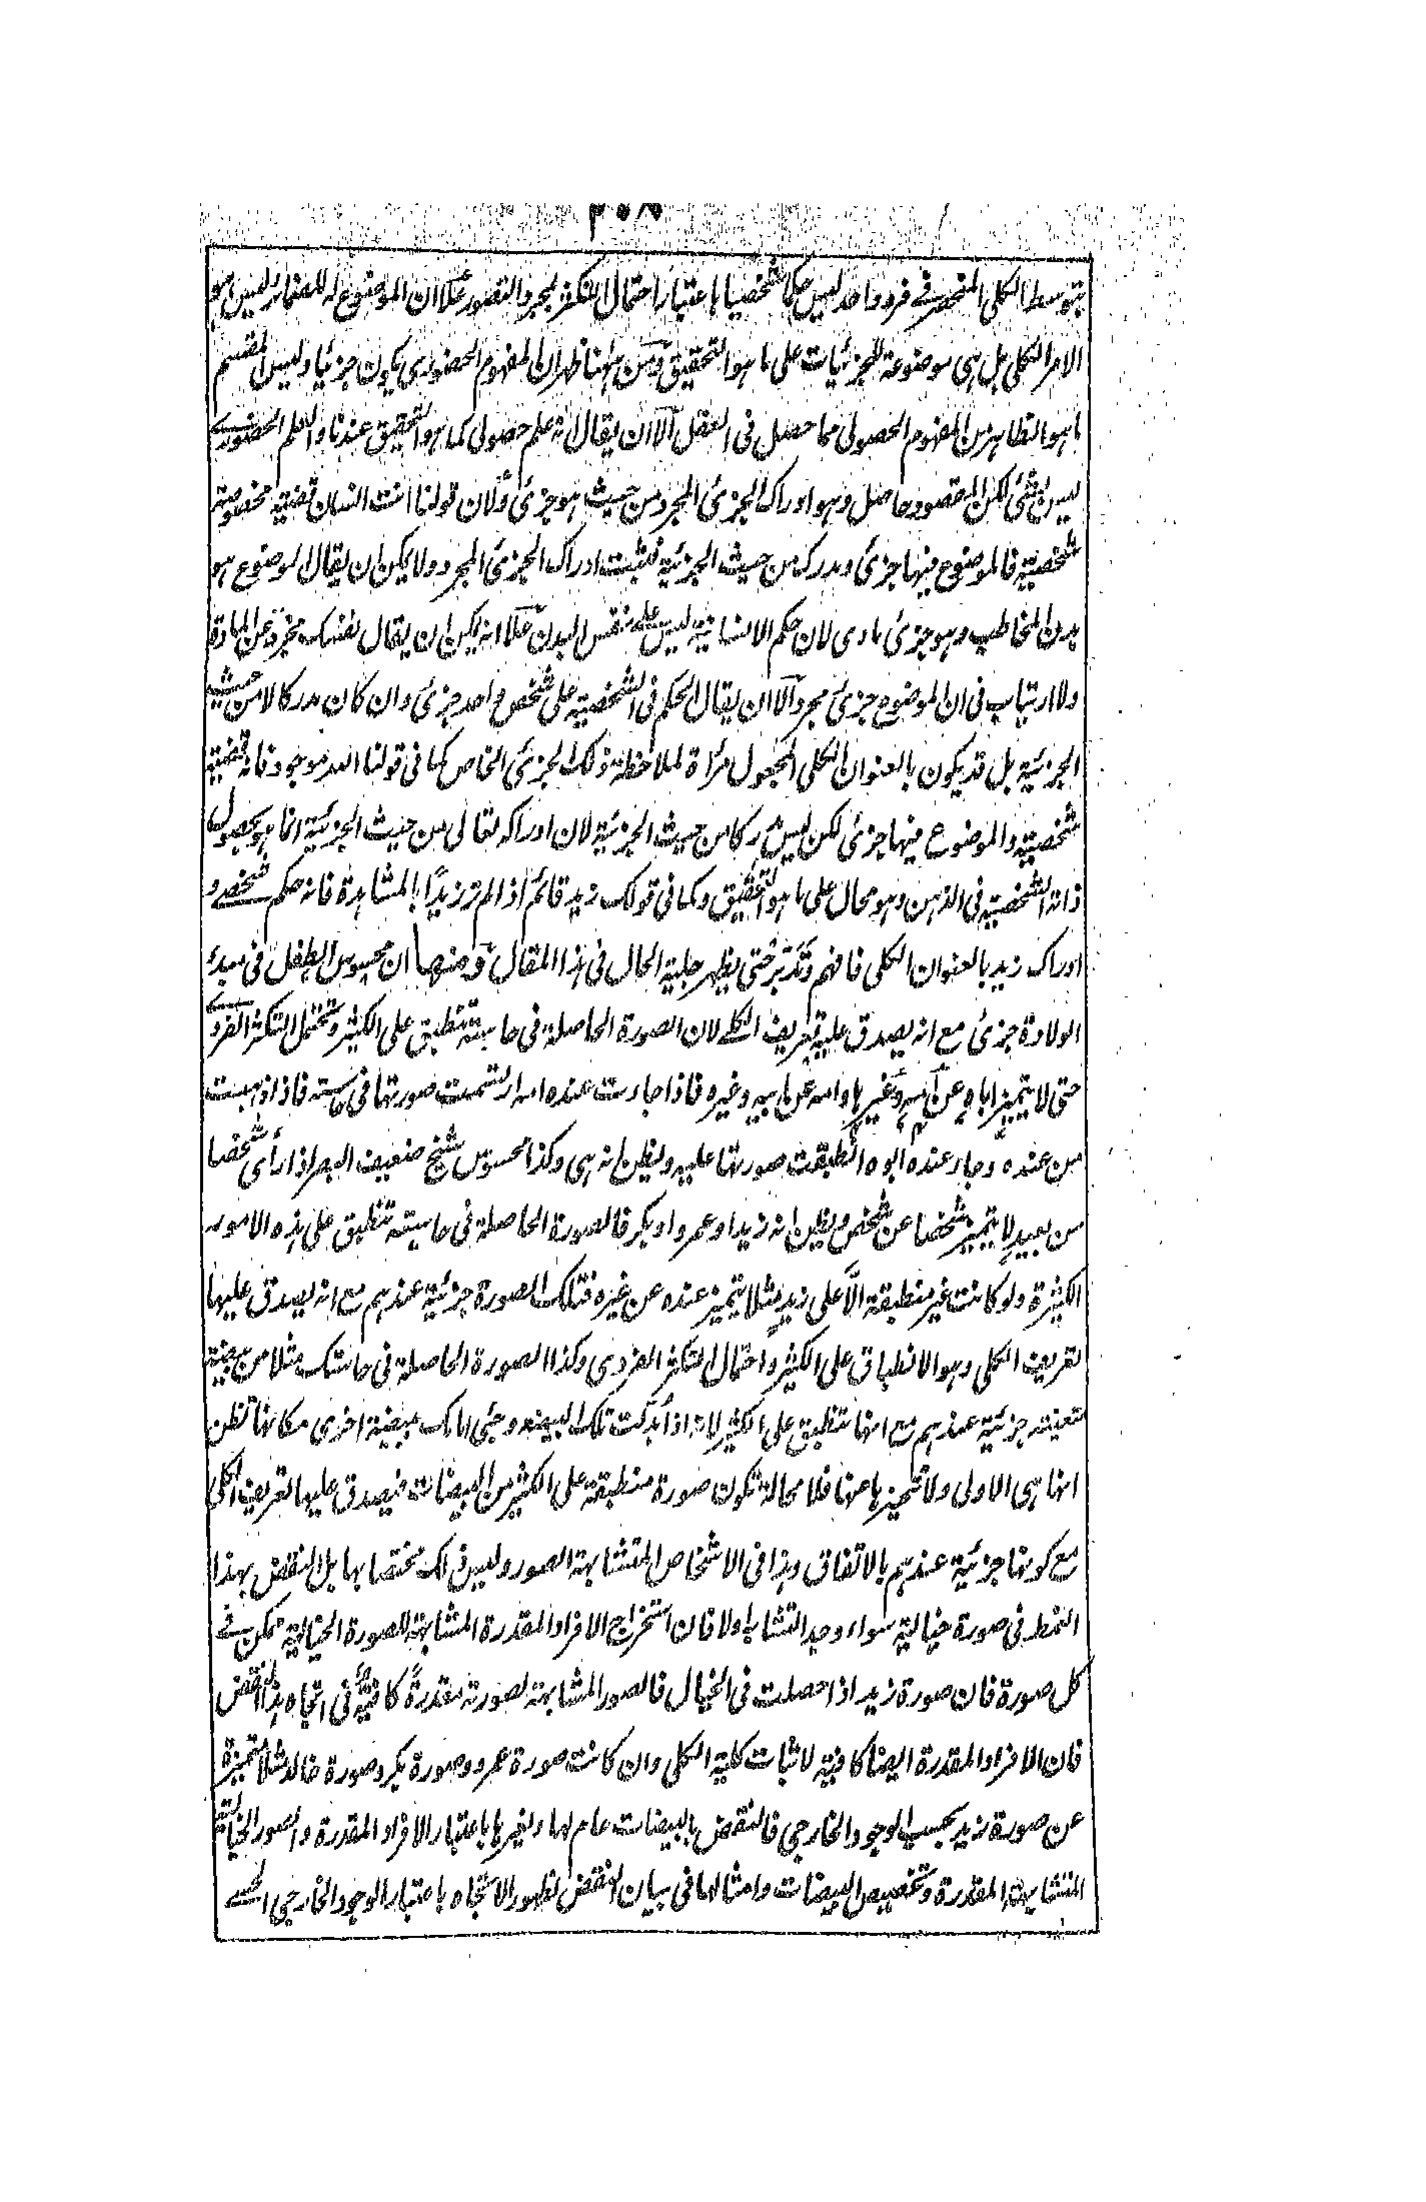 ٣٠٨
بتوسط الكلي المنحصر في فرد واحد ليس حكما شخصيا باعتبار احتمال التكثر لمجرد التصور على ان الموضوع له للضمائر ليس هو
الامر الكلي بل هي موضوعة للجزئيات على ما هو التحقيق ومن ههنا ظهر ان المفهوم الحضوري يكون جزئيا وليس المقسم
ما هو الظاهر من المفهوم الحصولي مما حصل في العقل الا ان يقال انه علم حصولي كما هو التحقيق عندنا والعلم الحضوري
ليس بشئ لكن المقصود حاصل وهو ادراك الجزئي المجرد من حيث هو جزئي ولان قولنا انت انسان قضية مخصوصة
شخصية فالموضوع فيها جزئي ومدرك من حيث الجزئية فثبت ادراك الجزئي المجرد ولا يمكن ان يقال الموضوع هو
بدن المخاطب وهو جزئي مادي لان حكم الانسانية ليس على نفس البدن على انه يمكن ان يقال نفسك مجرد عن المادة
ولا ارتياب في ان الموضوع جزئي مجرد الا ان يقال الحكم في الشخصية على شخص واحد جزئي وان كان مدركا لا من حيث
الجزئية بل قد يكون بالعنوان الكلي المجعول مرأة لملاحظة ذلك الجزئي الخاص كما في قولنا الله موجود فانه قضية
شخصية والموضوع فيها جزئي لكن ليس مدركا من حيث الجزئية لان ادراكه تعالى من حيث الجزئية انما هو بحصول
ذاته الشخصية في الذهن وهو محال على ما هو التحقيق وكما في قولك زيد قائم اذا لم تر زيدًا بالمشاهدة فانه حكم شخصي و
ادراك زيد بالعنوان الكلي فافهم وتدبر حتى يظهر جلية الحال في هذا المقال ومنها ان محسوس الطفل في مبدء
الولادة جزئي مع انه يصدق عليه تعريف الكلي لان الصورة الحاصلة في حاسته تنطبق على الكثير وتحتمل التكثر الفردي
حتى لا يتميز اباه عن امه وغيرها وامه عن ابيه وغيره فاذا جاءت عنده امه ارتسمت صورتها في حاسته فاذا ذهبت
من عنده وجاء عنده ابوه انطبقت صورتها عليه ويظن انه هي وكذا محسوس شيخ ضعيف البصر اذا رأى شخصا
من بعيد لا يتميز شخصا عن شخص ويظن انه زيد او عمرو او بكر فالصورة الحاصلة في حاسته تنطبق على هذه الامور
الكثيرة ولو كانت غير منطبقة الا على زيد مثلا يتميز عنده عن غيره فتلك الصورة جزئية عندهم مع انه يصدق عليها
تعريف الكلي وهو الانطباق على الكثير واحتمال التكثر الفردي وكذا الصورة الحاصلة في حاستك مثلا من بيضة
متعينة جزئية عندهم مع انها تنطبق على الكثير لانه اذا بدلت تلك البيضة وجئ امامك ببيضة اخرى مكانها تظن
انها هي الاولى ولا تتميزها منها فلا محالة تكون صورة منطبقة على الكثير من البيضات فيصدق عليها تعريف الكلي
مع كونها جزئية عندهم بالاتفاق وهذا في الاشخاص المتشابهة الصور وليس ذلك مختصا بها بل النقض بهذا
النمط في صورة خيالية سواء وجد التشابه او لا فان استخراج الافراد المقدرة المشابهة للصورة الخيالية ممكن في
كل صورة فان صورة زيد اذا حصلت في الخيال فالصور المشابهة لصورته مقدرةً كافية في اتجاه هذا النقض
فان الافراد المقدرة ايضا كافية لاثبات كلية الكلي وان كانت صورة عمرو وصورة بكر وصورة خالد مثلا متميزة
عن صورة زيد بحسب الوجود الخارجي فالنقض بالبيضات عام لها ولغيرها باعتبار الافراد المقدرة والصور الخيالية
المتشابهة المقدرة وتخصيص البيضات وامثالها في بيان النقض لظهور الاتجاه باعتبار الوجود الخارجي الحسي